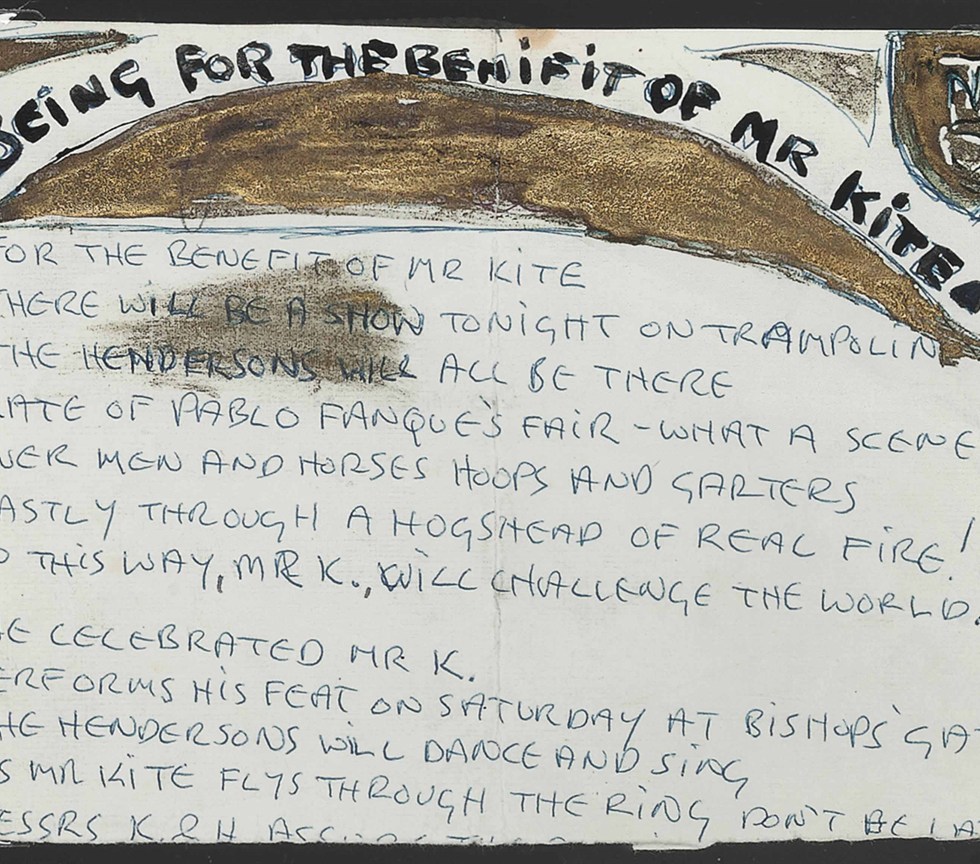 BEING FOR THE BENIFIT OF MR KITE!
FOR THE BENEFIT OF MR KITE
THERE WILL BE A SHOW TONIGHT ON TRAMPOLIN
THE HENDERSONS WILL ALL BE THERE
LATE OF PABLO FANQUE'S FAIR - WHAT A SCENE
VER MEN AND HORSES HOOPS AND GARTERS
ASTLY THROUGH A HOGSHEAD OF REAL FIRE!
THIS WAY, MR K., WILL CHALLENGE THE WORLD.
HE CELEBRATED MR K.
ERFORMS HIS FEAT ON SATURDAY AT BISHOPS GAT
HE HENDERSONS WILL DANCE AND SING
S MR KITE FLYS THROUGH THE RING DON'T BE LAT
ESSRS K & H